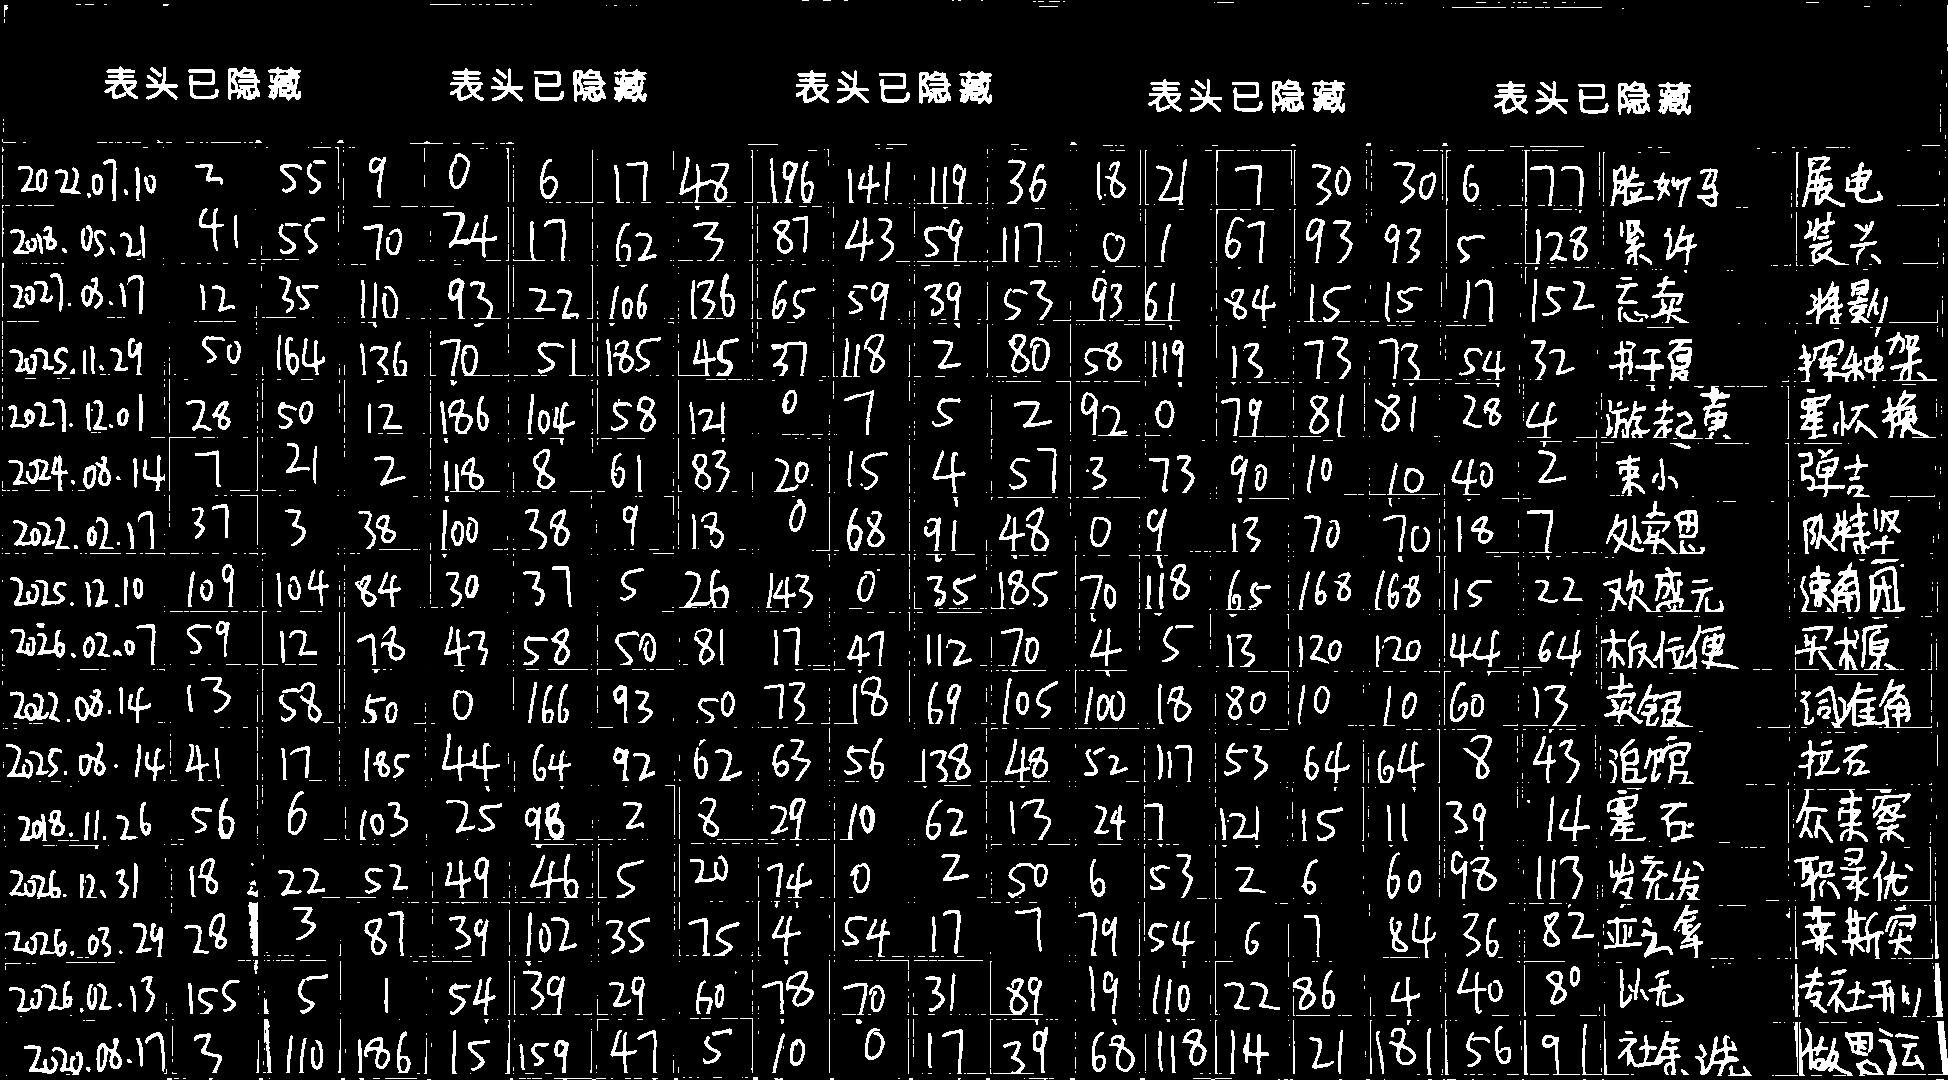 表头已隐藏 表头已隐藏 表头已隐藏 表头已隐藏 表头已隐藏
2022.07.10 2 55 9 0 6 17 48 196 141 119 36 18 21 7 30 30 6 77 脸妙予 展电
2018.05.21 41 55 70 24 17 62 3 87 43 59 117 0 1 67 93 93 5 128 紧许 装兴
2027.08.17 12 35 110 93 22 106 136 65 59 39 53 93 61 84 15 15 17 152 忘卖 将影
2025.11.29 50 164 136 70 51 185 45 37 118 2 80 58 119 13 73 73 54 32 书干夏 挥种架
2027.12.01 28 50 12 186 104 58 121 0 7 5 2 92 0 79 81 81 28 4 游起黄 霍怀换
2024.08.14 7 21 2 118 8 61 83 20 15 4 57 3 73 90 10 10 40 2 束小 弹吉
2022.02.17 37 3 38 100 38 9 18 0 68 91 48 0 9 13 70 70 18 7 处卖思 队特坚
2025.12.10 109 104 84 30 37 5 26 143 0 35 185 70 118 65 168 168 15 22 欢盛元
2026.02.07 59 12 78 43 58 50 81 17 47 112 70 4 5 13 120 120 44 64 板位便 买源
2022.08.14 13 58 50 0 166 93 50 73 18 69 105 100 18 80 10 10 60 13 卖银 词准角
2025.08.14 41 17 185 44 64 92 62 63 56 138 48 52 117 53 64 64 8 43 追馆 拉石
2018.11.26 56 6 103 25 98 2 8 29 10 62 13 24 7 121 15 11 39 14 霍石 众束察
2026.12.31 18 22 52 49 46 5 20 74 0 2 50 6 53 2 6 60 98 113 发充发 职录优
2026.03.29 28 3 87 39 102 35 75 4 54 17 7 79 54 6 7 84 36 82 亚拿 莱斯突
2026.02.13 155 5 1 54 39 29 60 78 70 31 89 19 110 22 86 4 40 80 以无 专社刑
2020.08.17 3 110 186 15 159 47 5 10 0 17 39 68 118 14 21 181 56 91 社条洗 做思运